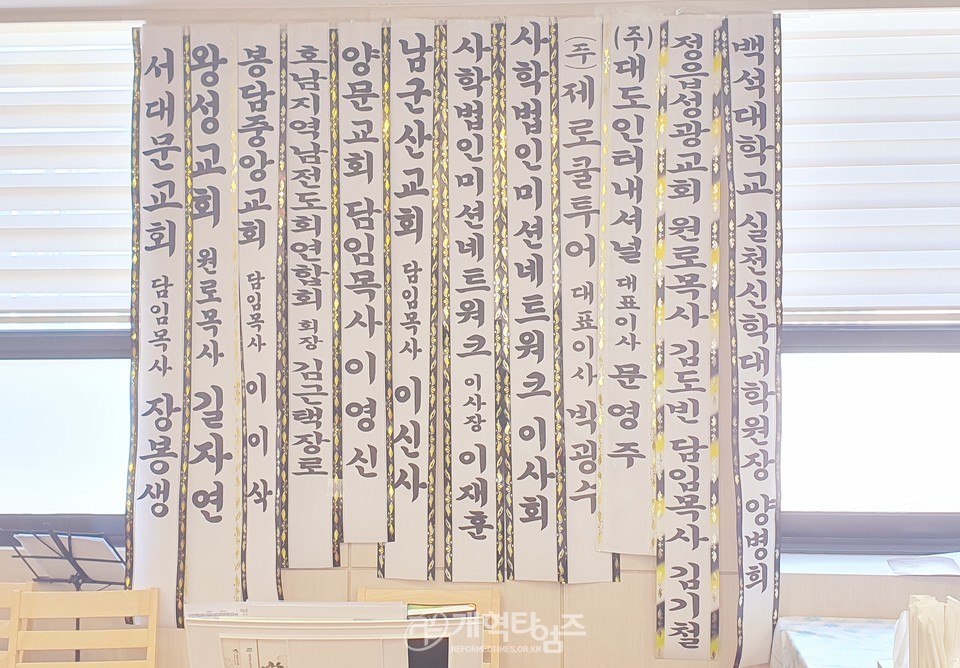 서대문교회 담임목사 장봉생
왕성교회 원로목사 길자연
봉담중앙교회 담임목사 이이삭
호남지역남전도회연합회 회장 김근택장로
양문교회 담임목사 이영신
남군산교회 담임목사 이신사
사학법인미션네트워크 이사장 이재훈
사학법인미션네트워크 이사회
(주)제로쿨투어 대표이사 박광수
(주)대도인터내셔널 대표이사 문영주
정읍성광교회 원로목사 김도빈 담임목사 김기철
백석대학교 실천신학대학원장 양병희
개혁타임즈
REFORMEDTIMES.OR.KR